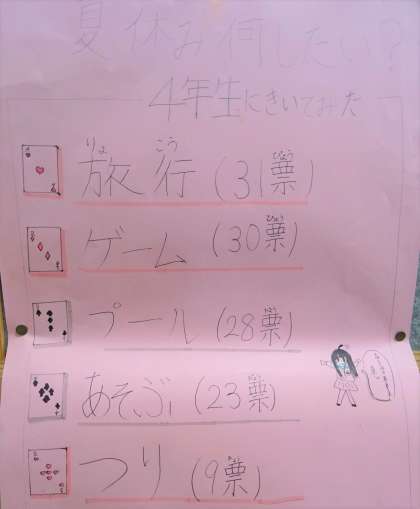 夏休み何したい?
4年生にきいてみた
旅行(31票)
りょ こう ひょう
ゲーム(30票)
ひょう
プール(28票)
あそぶ(23票)
つり(9票)